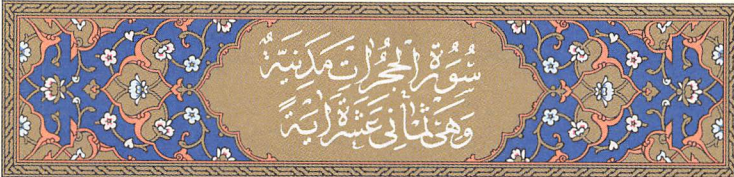 سُورَةُ الحُجُرَاتِ مَدَنِيَّةٌ
وَهِيَ ثَمَانِي عَشْرَةَ اٰيَةً